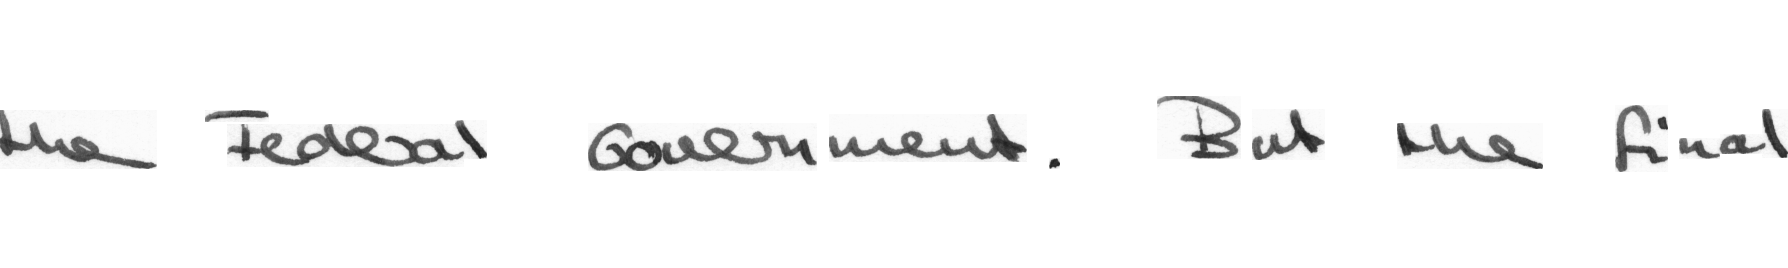 the Federal Government. But the final